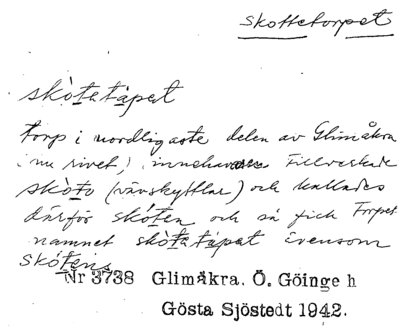 Skottetorpet
skòtatåpet
torp i nordligaste delen av Glimåkra
(nu rivet) innehavaren tillverkade
skòto (vävskyttlar) och kallades
därför skòten och så fick torpet
namnet skòtatåpet ävensom
skòtens
Nr 3738 Glimåkra. Ö. Göinge h
Gösta Sjöstedt 1942.